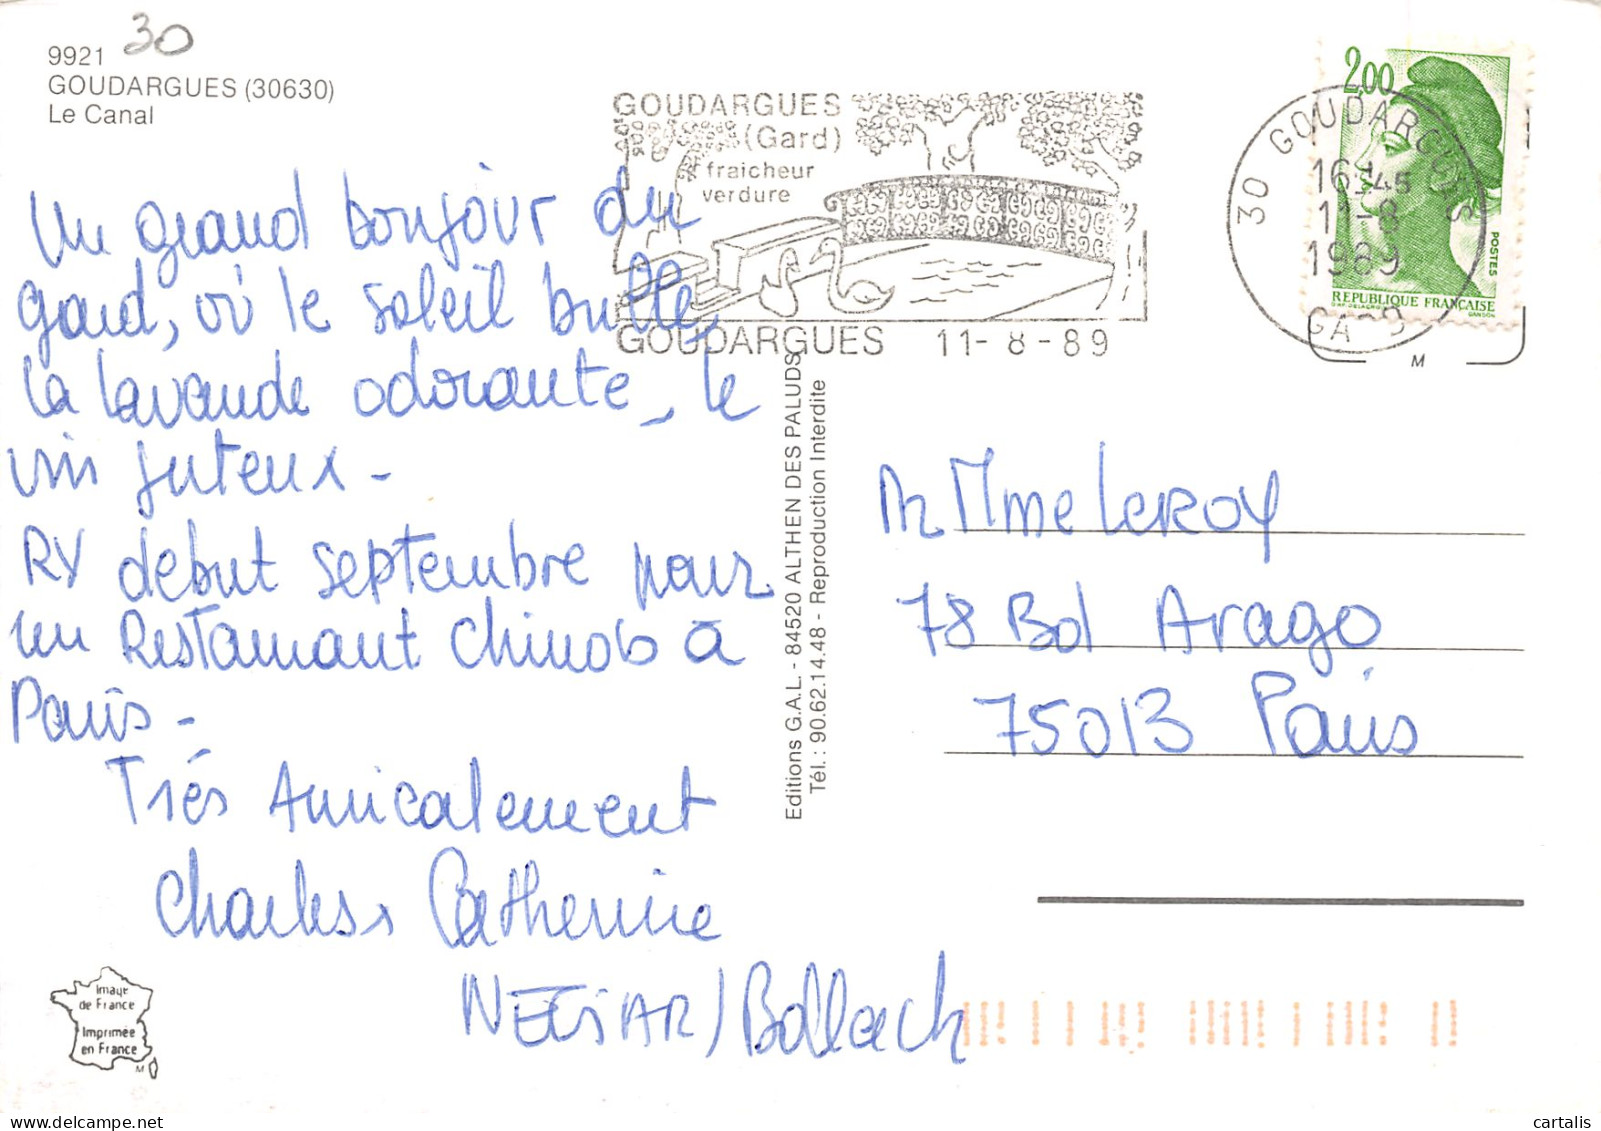 9921 30
GOUDARGUES (30630)
Le Canal
GOUDARGUES
(Gard)
fraicheur
verdure
GOUDARGUES 11-8-89
2,00
POSTES
REPUBLIQUE FRANÇAISE
GANDON
30 GOUDARGUES
16-45
11-8
1989
GARD
M
Un grand bonjour du
gard, où le soleil brille,
la lavande odorante, le
vin juteux -
RV debut septembre pour
un Restaurant Chinois à
Paris -
Très Amicalement
Charles Catherine
Bollach
Editions G.A.L. - 84520 ALTHEN DES PALUDS
Tél.: 90.62.14.48 - Reproduction Interdite
M Mme LeROY
78 Bd Arago
75013 Paris
Image
de France
Imprimée
en France
M
delcampe.net
cartalis